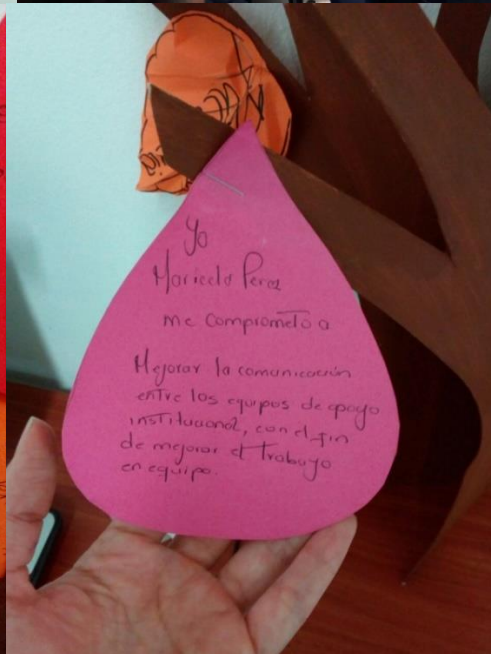 Yo
Maricela Perez
me comprometo a
Mejorar la comunicación
entre los equipos de apoyo
institucional, con el fin
de mejorar el trabajo
en equipo.